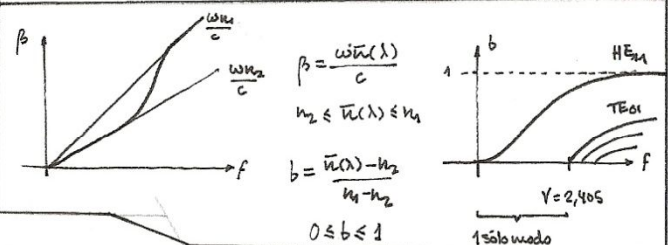 β
ωn₁/c
ωn₂/c
f
β = ωn̄(λ)/c
n₂ ≤ n̄(λ) ≤ n₁
b = n̄(λ)-n₂/n₁-n₂
0 ≤ b ≤ 1
b
1
HE₁₁
TE₀₁
f
V = 2,405
1 sólo modo